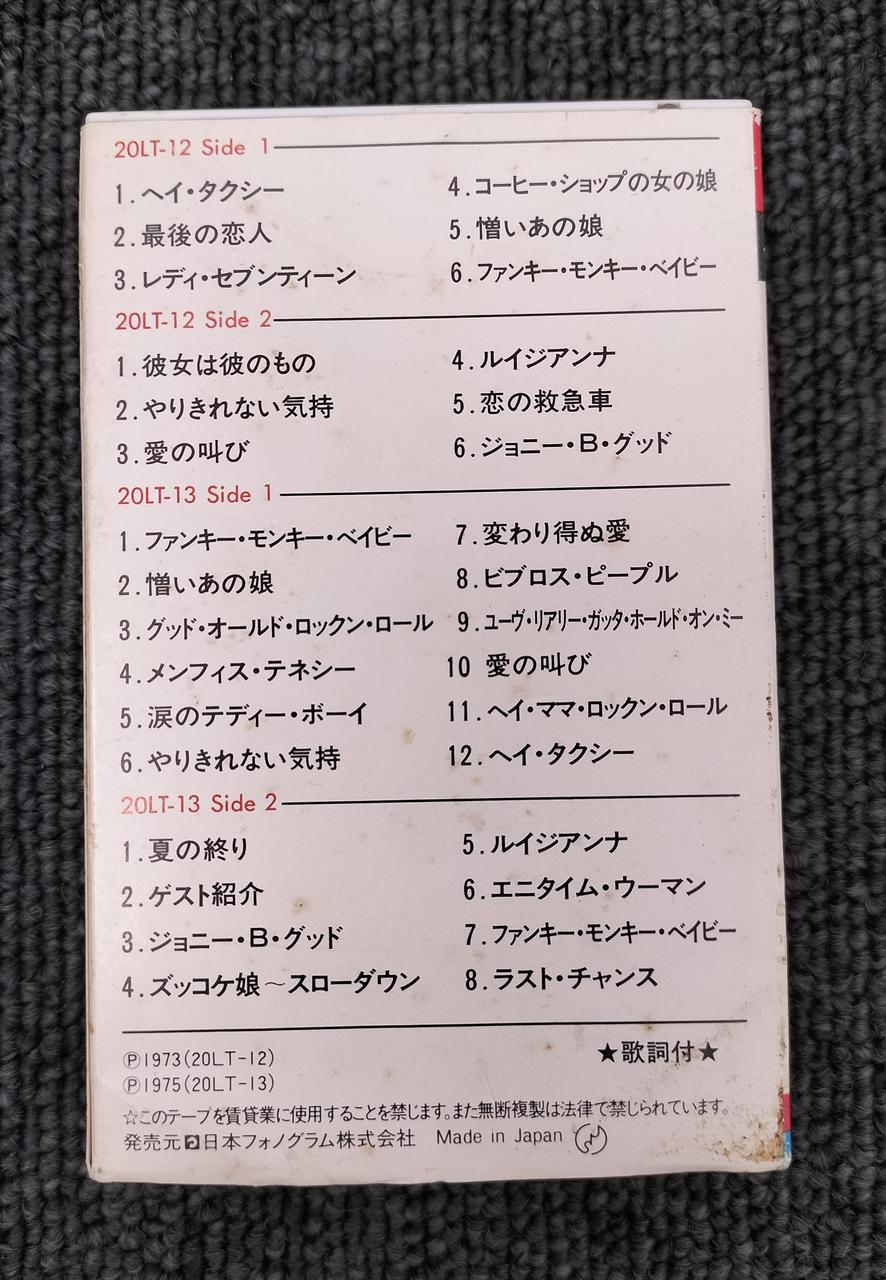 20LT-12 Side 1
1.ヘイ・タクシー
2.最後の恋人
3.レディ・セブンティーン
4.コーヒー・ショップの女の娘
5.憎いあの娘
6.ファンキー・モンキー・ベイビー
20LT-12 Side 2
1.彼女は彼のもの
2.やりきれない気持
3.愛の叫び
4.ルイジアンナ
5.恋の救急車
6.ジョニー・B・グッド
20LT-13 Side 1
1.ファンキー・モンキー・ベイビー
2.憎いあの娘
3.グッド・オールド・ロックン・ロール
4.メンフィス・テネシー
5.涙のテディー・ボーイ
6.やりきれない気持
7.変わり得ぬ愛
8.ビブロス・ピープル
9.ユーヴ・リアリー・ガッタ・ホールド・オン・ミー
10 愛の叫び
11.ヘイ・ママ・ロックン・ロール
12.ヘイ・タクシー
20LT-13 Side 2
1.夏の終り
2.ゲスト紹介
3.ジョニー・B・グッド
4.ズッコケ娘～スローダウン
5.ルイジアンナ
6.エニタイム・ウーマン
7.ファンキー・モンキー・ベイビー
8.ラスト・チャンス
℗1973(20LT-12)
℗1975(20LT-13)
★歌詞付★
☆このテープを賃貸業に使用することを禁じます。また無断複製は法律で禁じられています。
発売元 日本フォノグラム株式会社 Made in Japan